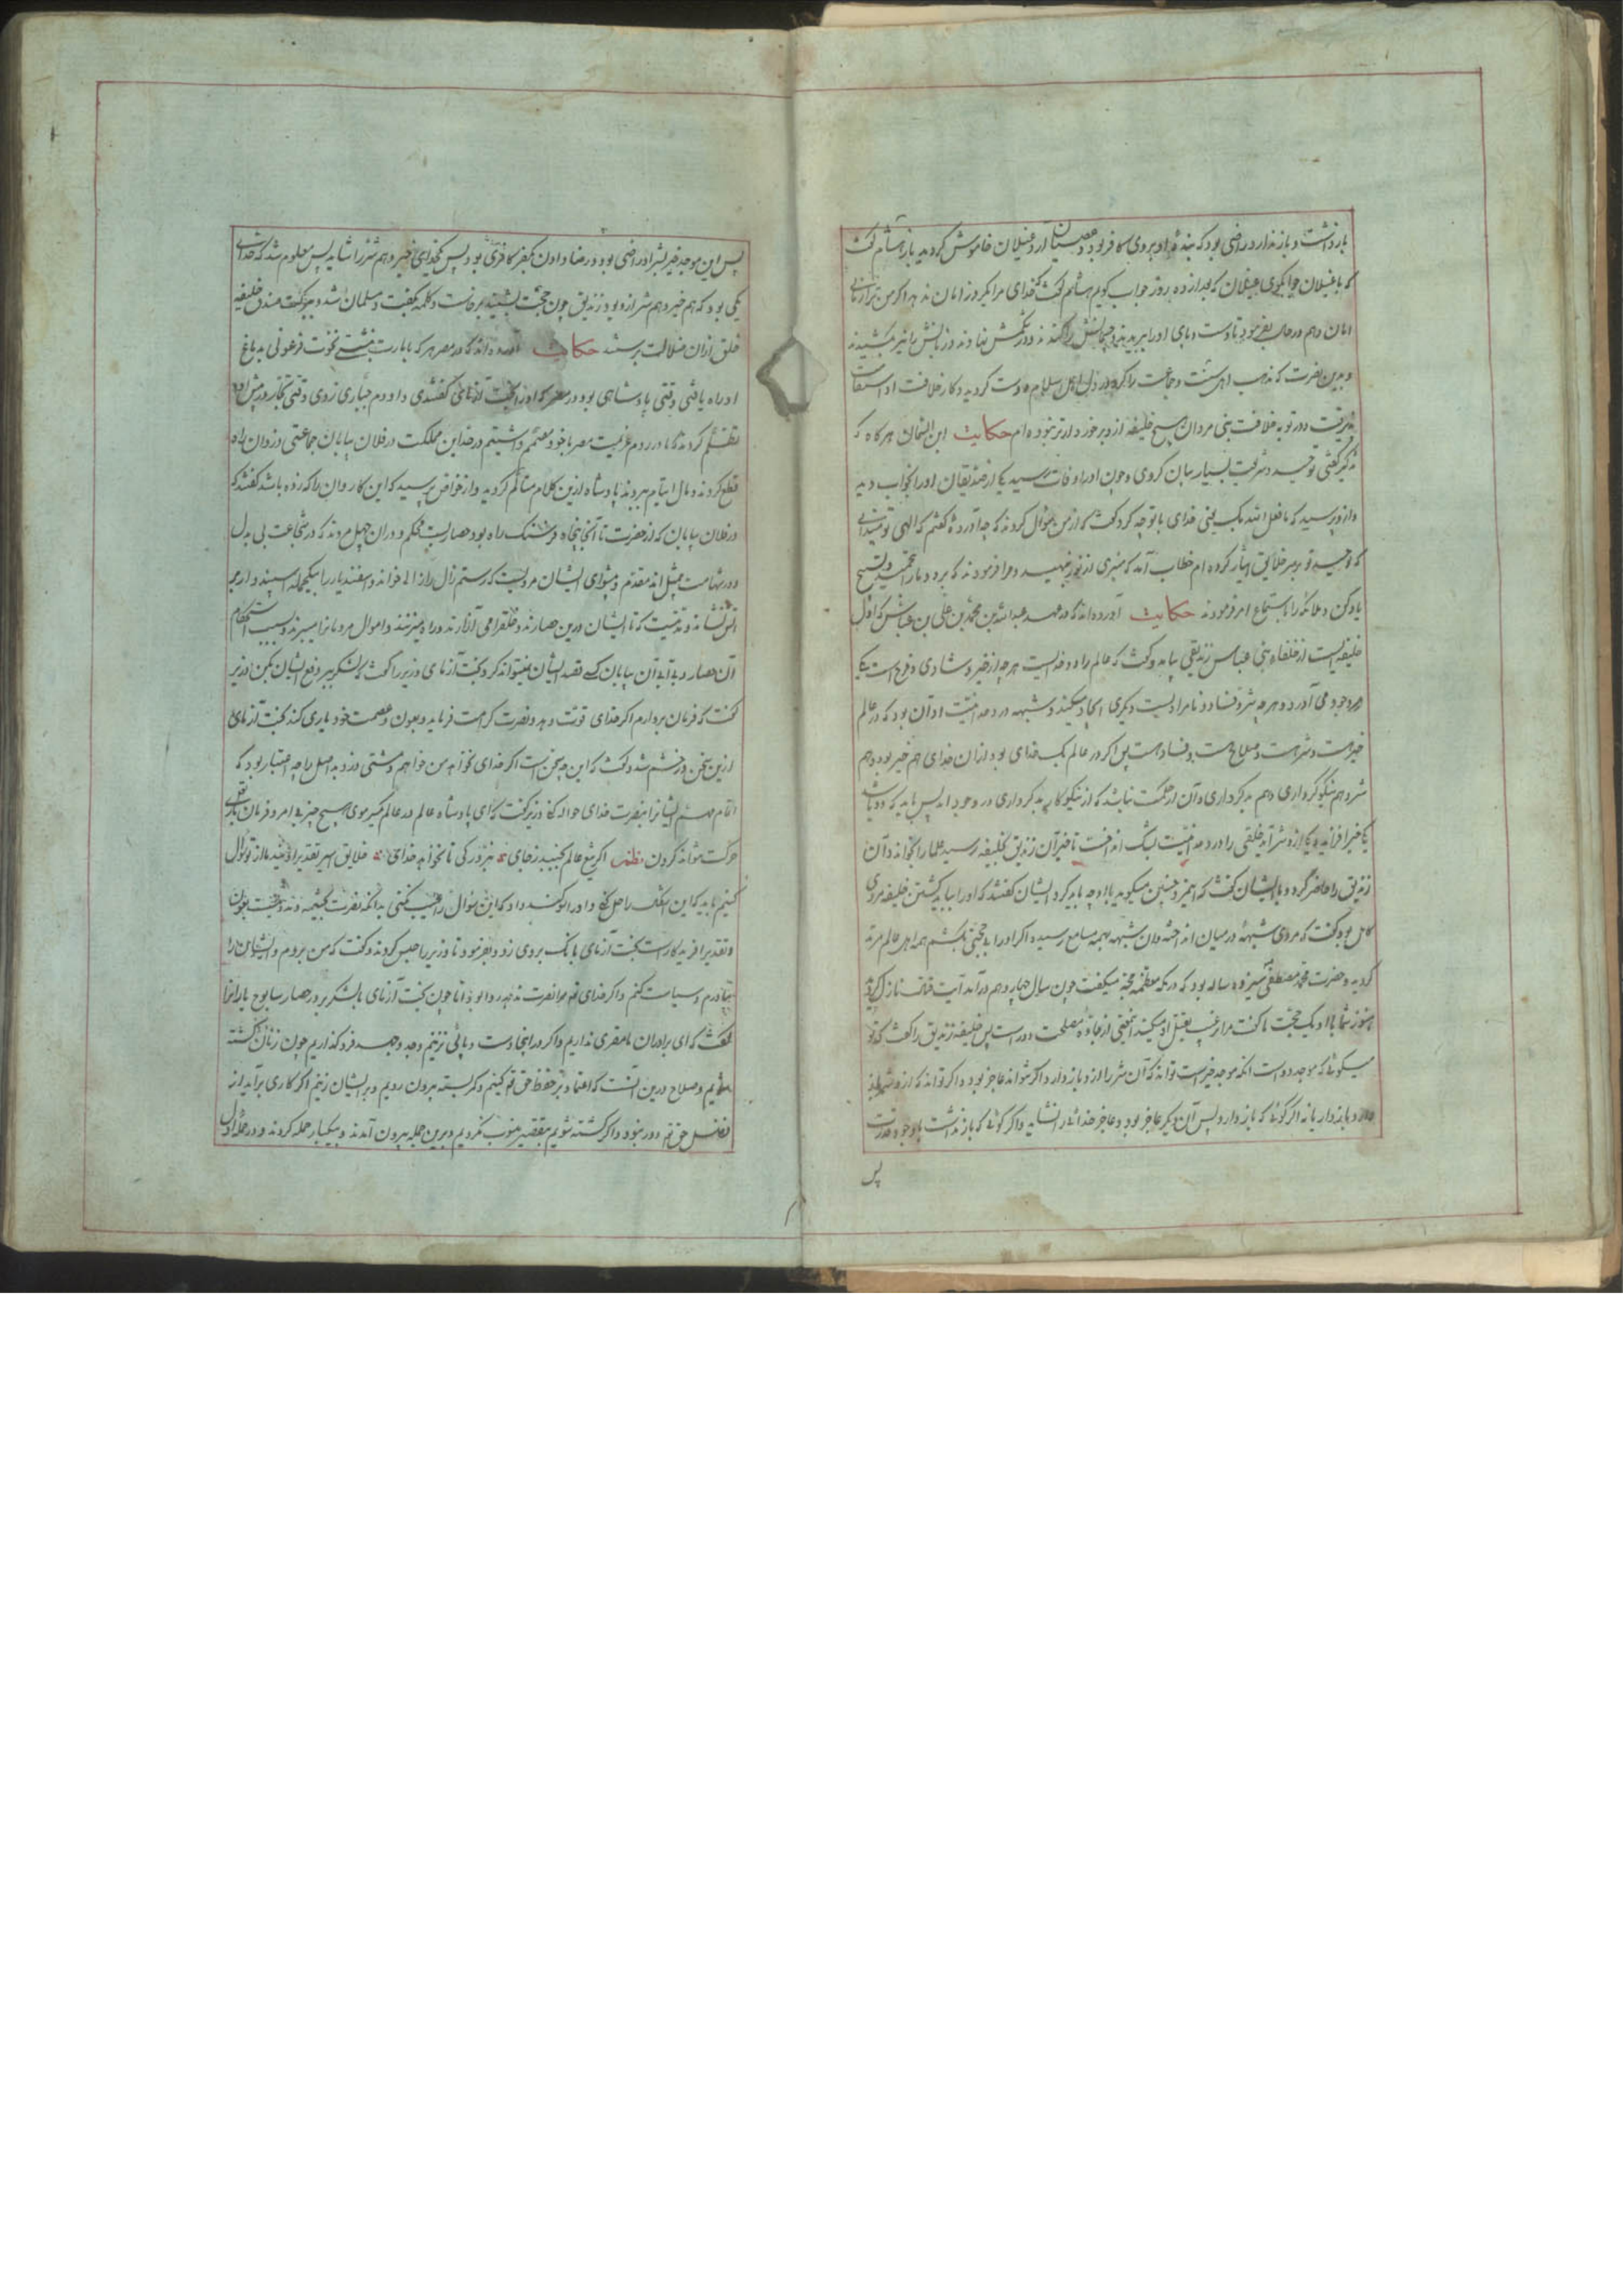 باز داشت و باز ندارد راضی بود که بنده او بروی کافر بود و عصیان آرد غیلان خاموش گردید باز هشام گفت
که با غیلان جوابگوی غیلان که بعد از ده روز جواب گویم هشام گفت خدای مرا یکروز امان ندهد اگر من ترا
امان دهم در حال بفرمود تا دست و پای او را ببریدند و چشمانش را کندند و در نمکش نهادند و زبانش را نیز کشیدند
و بدین نصرت که مذهب اهل سنت و جماعت را کرد در دل اهل اسلام دوست گردید و کار خلافت او استقامت
پذیرفت و در نوبه خلافت بنی مروان هیچ خلیفه ازو برخوردارتر نبوده ام حکایت ابن السماک هر گاه که
تذکیر گفتی توحید و شریعت بسیار بیان کردی و چون او را وفات رسید یکی از صدیقان او را بخواب دید
و ازو پرسید که ما فعل الله بک یعنی خدای با تو چه کرد گفت که از من سؤال کردند که چه آورده گفتم که الهی تو میدانی
که توحید تو بر سر خلایق ایثار کرده ام خطاب آمد که منبری از نور بنهید و مرا فرمودند که برو و ما را تحمید و تسبیح
یاد کن و ملائکه را باستماع امر فرمودند حکایت آورده اند که در عهد عبدالله بن محمد بن علی بن عباس که اول
خلیفه ایست از خلفاء بنی عباس زندیقی بیامد و گفت که عالم را دو خداست هر چه از خیر و شادی و فرح است یکی
در وجود می آورد و هر چه شر و فساد و نامرادیست دیگری ایجاد میکند و شبهه در وحدانیت او آن بود که در عالم
خیر هست و شر هست و صلاح هست و فساد هست پس اگر در عالم یک خدای بود از آن خدای هم خیر بود و هم
شر و هم نیکوکرداری و هم بدکرداری و آن از حکمت نباشد که از نیکوکار بدکرداری در وجود آید پس باید که دو باشد
یکی خیر آفریند و یکی ازو شر آید خلقی را در وحدانیت بشک انداخت تا خبر آن زندیق بخلیفه رسید علما را بخواند و آن
زندیق را حاضر کرد و با ایشان گفت که این مرد چنین میگوید با او چه باید کرد ایشان گفتند که او را بباید کشتن خلیفه مردی
کامل بود گفت که مردی شبهه در میان انداخته و آن شبهه بهمه مسامع رسیده اگر او را بی حجتی بکشم همه اهل عالم مرتد
گردند و حضرت محمد مصطفی سیزده ساله بود که در مکه معظمه حجه میگفت چون سال چهاردهم درآمد آیت قتال نازل گردید
هنوز شما با او یک حجت ناگفته مرا ترغیب بقتل او میکنید این معنی از جاده مصلحت دور است پس خلیفه زندیق را گفت که تو
میگوئی که موجد دو است آنکه موجد خیر است تواند که آن شر را ازو باز دارد اگر نتواند عاجز بود و اگر تواند که ازو شر باز
دارد باز دارد یا نه اگر گوئی که باز دارد پس آن دیگر عاجز بود و عاجز خدائی را نشاید و اگر گوئی که باز نداشت با وجود قدرت
پس
پس این موجد خیر بشر او راضی بود و رضا دادن بکفر کافری بود پس خدای خیر و هم شر را شاید پس معلوم شد که خدای
یکی بود که هم خیر و هم شر ازو بود زندیق چون حجت بشنید برخاست و کلمه بگفت و مسلمان شد و ببرکت صدق خلیفه
خلق ازان ضلالت برستند حکایت آورده اند که در مصر هر که بامارت نشستی نخوت فرعونی بدماغ
او راه یافتی وقتی پادشاهی بود در مصر که او را بخت آزمای گفتندی و او دم جباری زدی وقتی تجار در پیش او
تظلم کردند که ما در روم عزیمت مصر با خود مصمم داشتیم در حد این مملکت در فلان بیابان جماعتی دزدان راه
قطع کردند و مال ایتام ببردند پادشاه ازین کلام متألم گردید و از خواص پرسید که این کاروان را که زده باشد گفتند که
در فلان بیابان که از حضرت تا آنجا پنجاه فرسنگ راه بود حصاریست محکم و دران چهل مردند که در شجاعت بی بدل
و در شهامت بمثل اند مقدم و پیشوای ایشان مردیست که رستم زال را زالی خواند و اسفندیار را بیکحمله از اسپ
و مدتیست که تا ایشان درین حصارند و خلق را می آزارند و راه میزنند و اموال مردمانرا میبرند و بسبب استحکام
آن حصار و بی آبی آن بیابان کسی قصد ایشان نمیتواند کرد بخت آزمای وزیر را گفت که لشکر ببر و دفع ایشان بکن وزیر
گفت که فرمان بردارم اگر خدای قوت دهد و نصرت کرامت فرماید و بعون و عصمت خود یاری کند بخت آزمای
ازین سخن در خشم شد و گفت که این چه سخن است اگر خدای نخواهد من خواهم و مشتی دزد بد اصل را چه اعتبار بود که
اتمام مهم ایشانرا بنصرت خدای حواله کنی وزیر گفت که ای پادشاه عالم در عالم یکسر موی هیچ چیز بی امر و فرمان باری تعالی
حرکت نتواند کردن نظم اگر تیغ عالم بجنبد ز جای نبرد رگی تا نخواهد خدای خلایق اسیر تقدیر او بند ما از تو سؤال
کنیم باید که این اشکال را حل کنی
و تقدیر آفریدگار است بخت آزمای بانگ بروی زد و بفرمود تا وزیر را حبس کردند و گفت که من بروم و ایشان را
بیارم و سیاست کنم و اگر خدای تع مرا نصرت ندهد چون بخت آزمای با لشکر بر در حصار
گفت که ای برادران ما مقری نداریم و اگر در اینجا دست و پائی نزنیم و جد و جهد فرو گذاریم چون زنان کشته
شویم و صلاح درین است که اعتماد بر حفظ حق تع کنیم و کمر بسته بیرون رویم و بر ایشان زنیم اگر کاری برآید از
فضل حق تع دور نبود و اگر کشته شویم بتقصیر منسوب نگردیم و برین جمله بیرون آمدند و بیکبار حمله کردند و در حمله اول